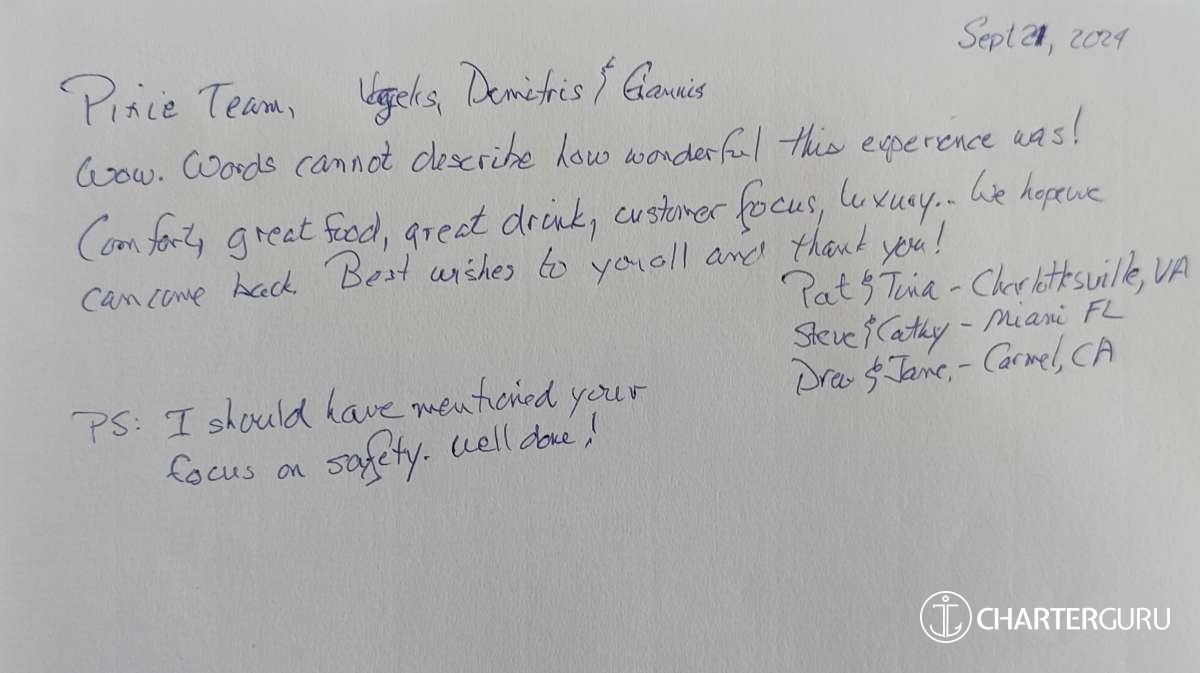 Sept 21, 2024
Pixie Team, Demitris & Giannis
Wow. Words cannot describe how wonderful this experience was!
Comfort, great food, great drink, customer focus, luxury... We hope we
can come back. Best wishes to you all and thank you!
Pat & Tina - Charlottesville, VA
Steve & Cathy - Miami FL
Drew & Jane, - Carmel, CA
PS: I should have mentioned your
focus on safety. Well done!
CHARTERGURU